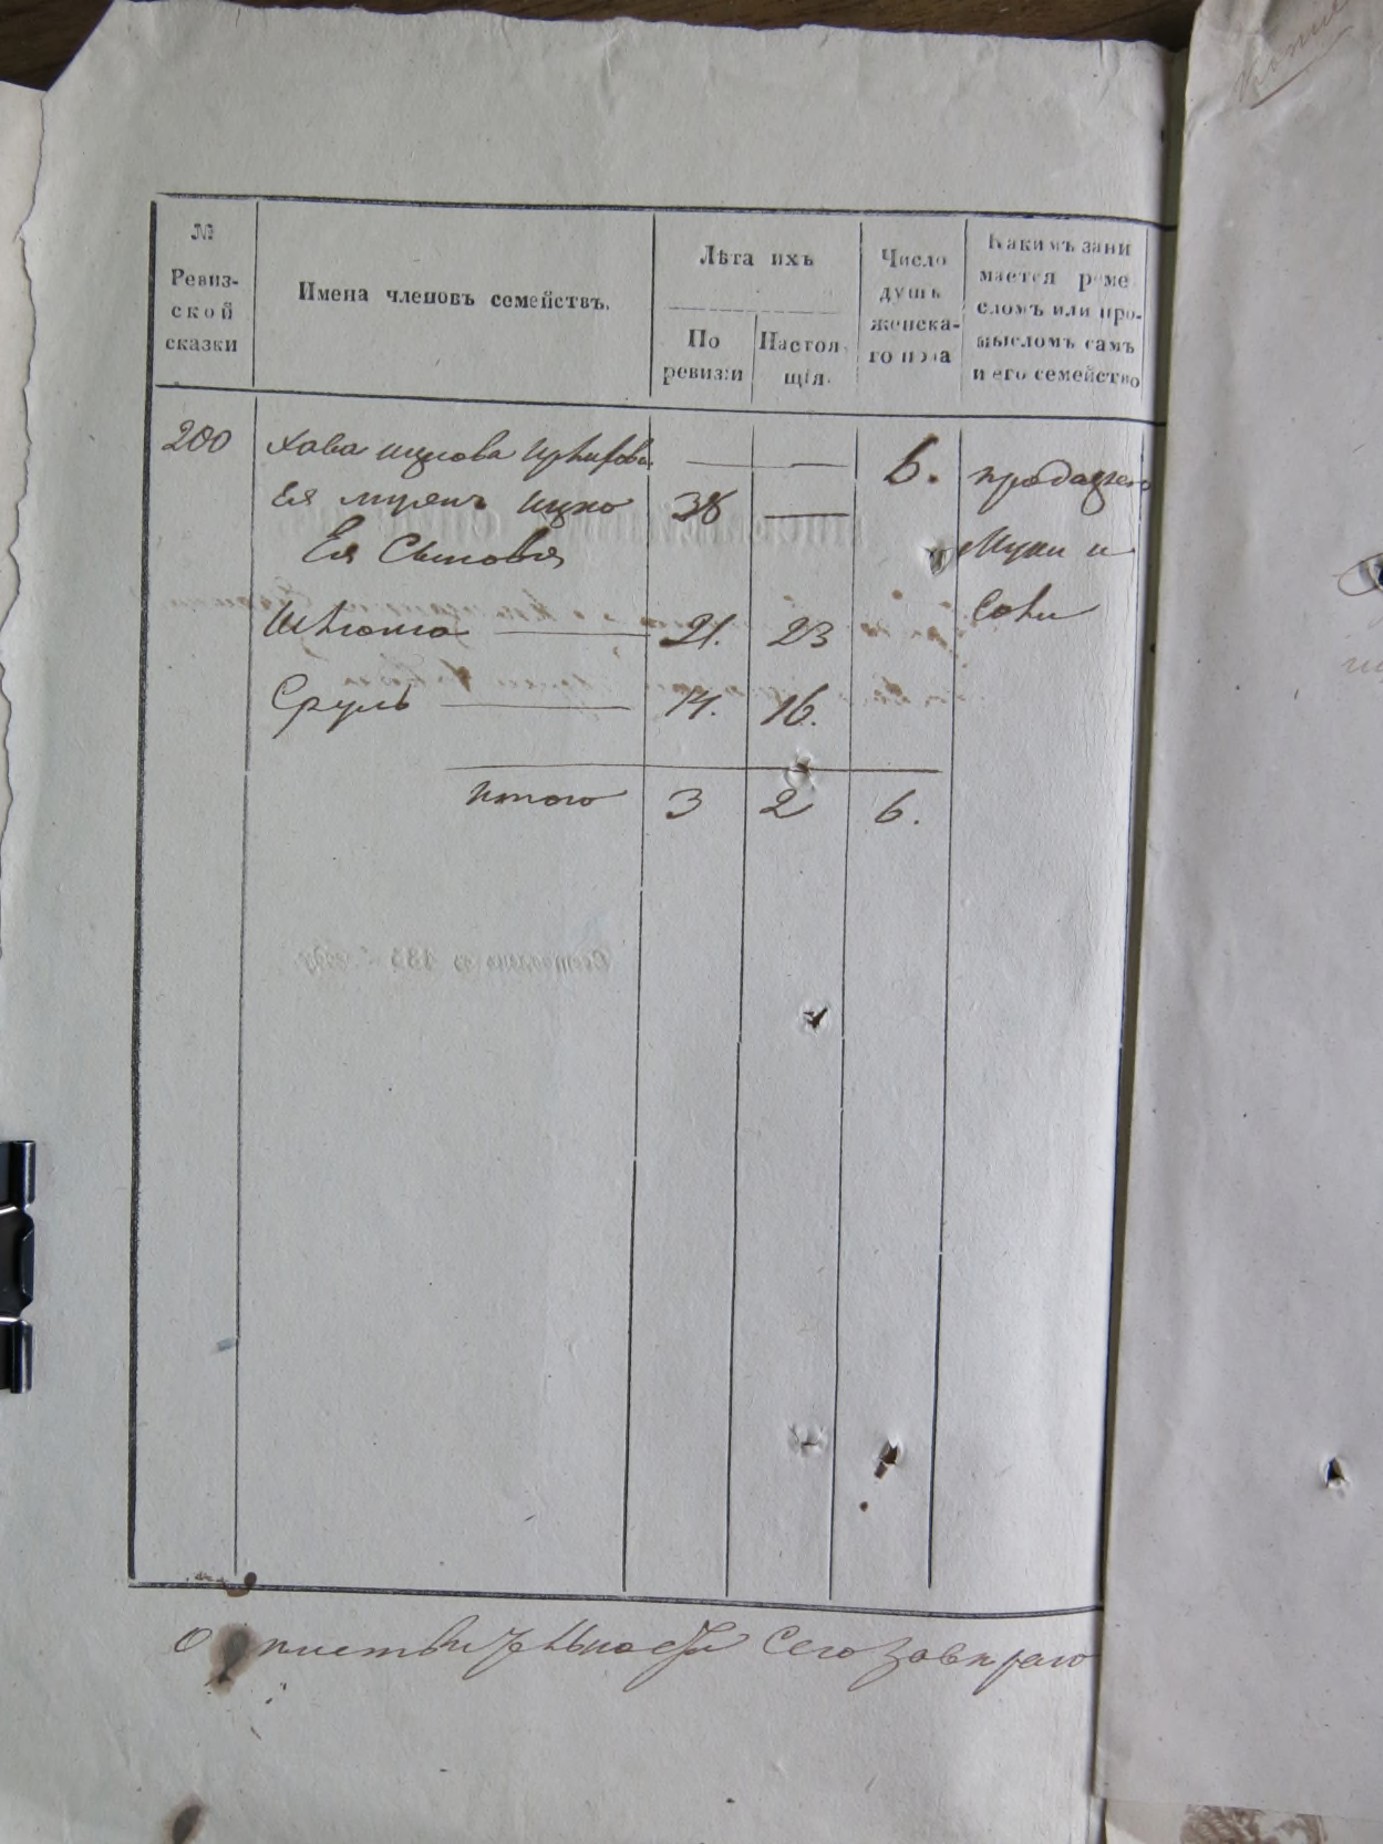 №
Ревиз-
ской
сказки
Имена членовъ семействъ.
Лѣта ихъ
По
ревизіи
Настоя-
щія.
Число
душъ
женска-
го пола
Какимъ зани
мается реме
сломъ или про-
мысломъ самъ
и его семейство
200 Хава Ицкова — — 6. продажею
Ея мужъ Ицко 38 —
Ея Сыновья Муки и
21. 23 Соли
Сруль 14. 16.
Итого 3 2 6.
Сего